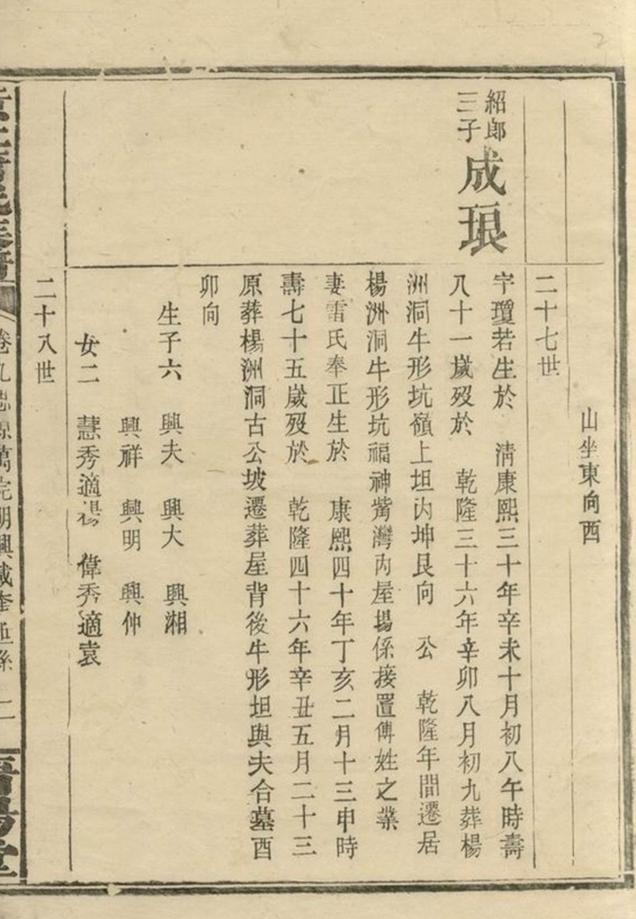 山坐東向西
二十七世
紹郎
三子
成琅
字瓊若生於 淸康熙三十年辛未十月初八午時壽
八十一歲歿於 乾隆三十六年辛卯八月初九葬楊
洲洞牛形坑嶺上坦內坤艮向 公 乾隆年間遷居
楊洲洞牛形坑福神觜灣內屋場係接置傅姓之業
妻雷氏奉正生於 康熙四十年丁亥二月十三申時
壽七十五歲歿於 乾隆四十六年辛丑五月二十三
原葬楊洲洞古公坡遷葬屋背後牛形坦與夫合墓酉
卯向
生子六 興夫 興大 興湘
興祥 興明 興仲
女二 慧秀適楊 偉秀適袁
二十八世